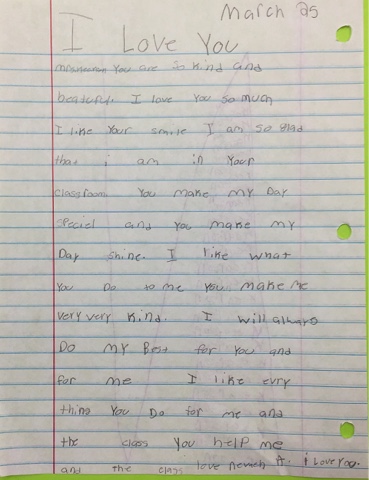 March 25
I Love You
You are so kind and
beateful. I love you so much
I like Your smile I am so glad
that i am in Your
classroom You make my Day
special and you make my
Day shine. I like what
You Do to me You make me
very very kind. I will always
Do my Best for You and
for me I like evry
thing You Do for me and
the class You help me
and the class love A. i Love You.